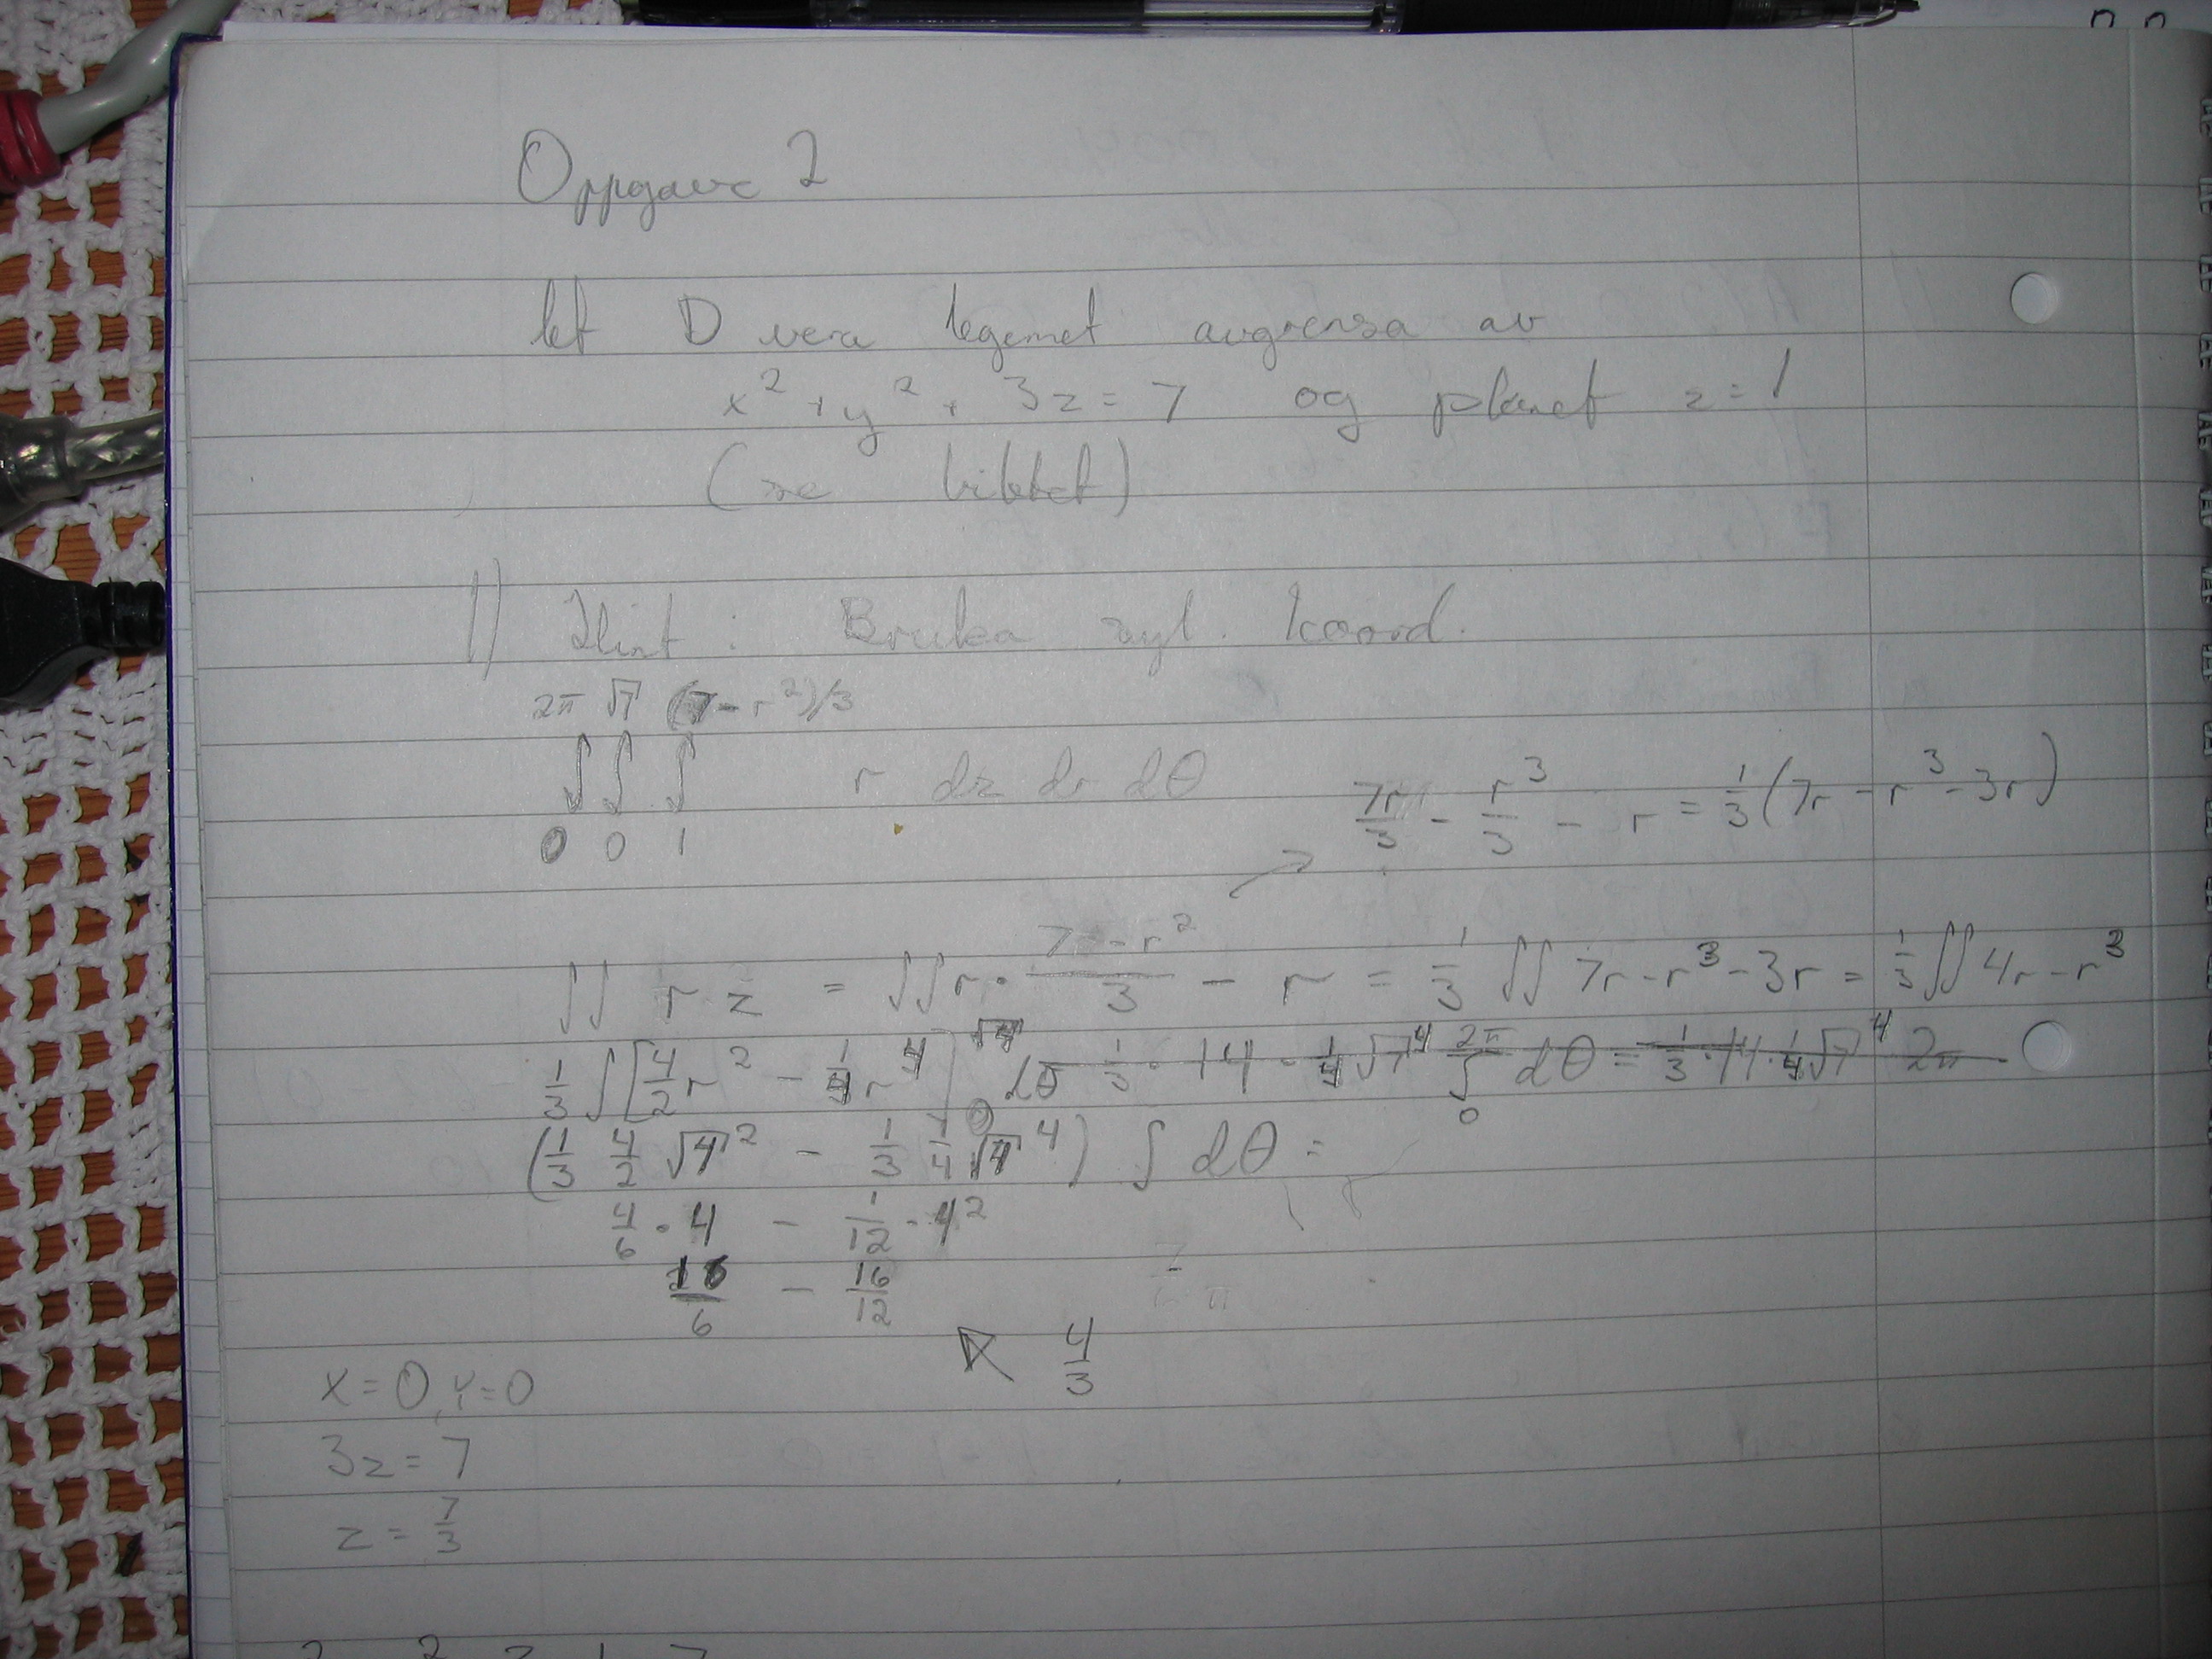 Oppgave 2
let D vera legemet avgrensa av
x² + y² + 3z = 7 og planet z = 1
(se biletet)
1) Hint : Bruka syl. koord.
2π √7 (7 - r²)/3
∫ ∫ ∫ r dz dr dθ
0 0 1
7r/3 - r³/3 - r = 1/3 (7r - r³ - 3r)
∫∫ r z = ∫∫ r · (7 - r²)/3 - r = 1/3 ∫∫ 7r - r³ - 3r = 1/3 ∫∫ 4r - r³
1/3 ∫ [4/2 r² - 1/4 r⁴]₀^√4 dθ 1/3 · 14 - 1/4 √7⁴ ∫₀^2π dθ = 1/3 · 14 · 1/4 √7⁴ 2π
(1/3 4/2 √4² - 1/3 1/4 √4⁴) ∫ dθ =
4/6 · 4 - 1/12 · 4²
16/6 - 16/12
4/3
x = 0, y = 0
3z = 7
z = 7/3